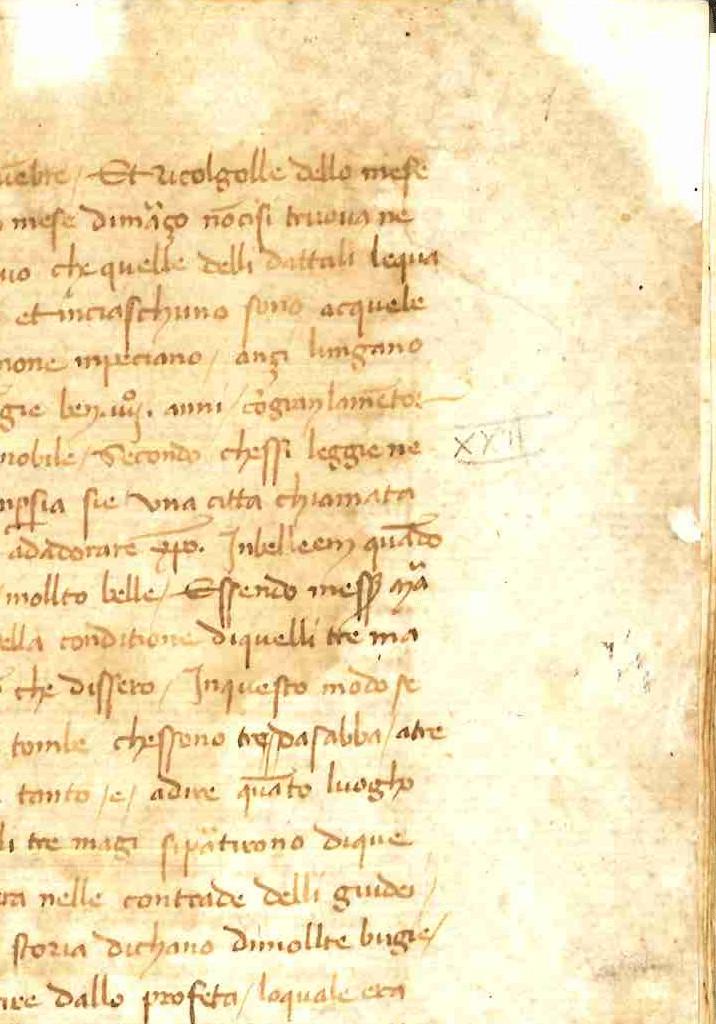 vēbre / Et ricolgolle dello mese
mese dimāço nōcisi truova ne
che quelle delli dattali lequa
et inciaschuno sono acquele
none inpeciano / anzi lungano
gie ben .iiij. anni / cōgranlamēto:
nobile / Secondo chessi leggie ne
sie una citta chiamata
XXII
adadorare xpo. Inbelleem quādo
mollto belle / Essendo mess mā
ella conditione diquelli tre ma
che dissero / Inquesto modo se
tombe chessono tre dasabba / atre
tanto / e / adire quāto luogho
li tre magi sipātirono dique
nelle contrade delli giudei /
storia dichano dimollte bugie /
dallo profeta / loquale era